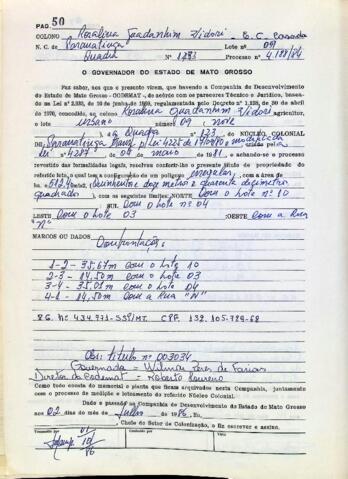 PAG. 50
COLONO Rosalina Guadanhim Vidori - E. C. Casada
N. C. de Paranatinga Lote nº 09
Quadra Nº 1283 Processo nº 4.188/84
O GOVERNADOR DO ESTADO DE MATO GROSSO
Faz saber, aos que o presente virem, que havendo a Companhia de Desenvolvimento
do Estado de Mato Grosso - CODEMAT -, de acôrdo com os pareceres Técnico e Jurídico, basea-
do na Lei nº 2.335, de 10 de junho de 1969, regulamentada pelo Decreto nº 1.225, de 30 de abril
de 1970, concedido, ao colono Rosalina Guadanhim Vidori agricultor,
o lote urbano número 09, nove
da Quadra nº 123, DO NÚCLEO COLONIAL
DE Paranatinga
Lei nº 4287 de 04 de maio de 1981, e achando-se o processo
revestido das formalidades legais, resolveu conferir-lhe o presente título de propriedade do
referido lote, o qual tem a configuração de um polígono irregular, com a área de
ha 512,40 metros
quadrados, com os seguintes limites: NORTE Com o Lote nº 10
SUL Com o Lote nº 04
LESTE Com o Lote 03 OESTE Com a Rua
"N"
MARCOS OU DADOS Confrontação:
1-2 - 35,67m com o lote 10
2-3 - 14,50m com o lote 03
3-4 - 35,01m com o Lote 04
4-1 - 14,50m com a Rua "N"
RG. Nº 434.771-SSP/MT. CPF. 132.105.789-68
Obs: título nº 003034
Governador = Wilmar Peres de Farias
Diretor da Codemat = Roberto Loureiro
Como tudo consta do memorial e planta que ficam arquivados nesta Companhia, juntamente
com o processo de medição e loteamento do referido Núcleo Colonial.
Dado e passado na Companhia de Desenvolvimento do Estado de Mato Grosso
aos 02 dias do mês de Julho de 1986, Eu,
Chefe do Setor de Colonização, O fiz escrever e assino.